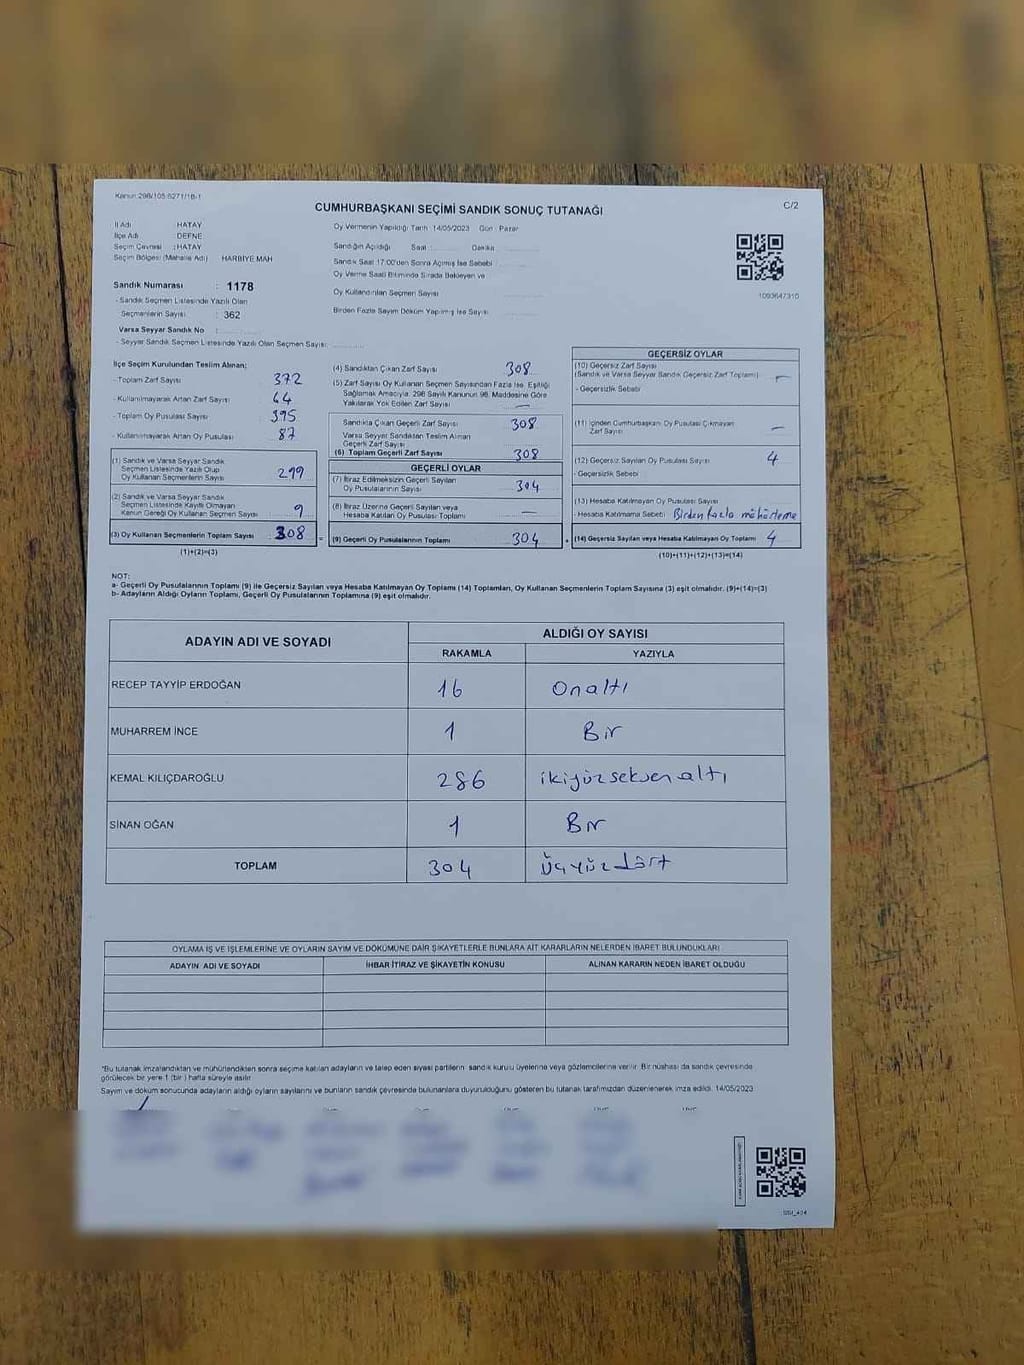 Kanun 298/105 6271/18-1
CUMHURBAŞKANI SEÇİMİ SANDIK SONUÇ TUTANAĞI
C/2
İl Adı : HATAY
İlçe Adı : DEFNE
Seçim Çevresi : HATAY
Seçim Bölgesi (Mahalle Adı) : HARBİYE MAH
Sandık Numarası : 1178
- Sandık Seçmen Listesinde Yazılı Olan
Seçmenlerin Sayısı : 362
Varsa Seyyar Sandık No :
- Seyyar Sandık Seçmen Listesinde Yazılı Olan Seçmen Sayısı:
Oy Vermenin Yapıldığı Tarih 14/05/2023 Gün : Pazar
Sandığın Açıldığı Saat : Dakika :
Sandık Saat 17:00'den Sonra Açılmış İse Sebebi
Oy Verme Saati Bitiminde Sırada Bekleyen ve
Oy Kullandırılan Seçmen Sayısı
Birden Fazla Sayım Döküm Yapılmış İse Sayısı
1093647310
İlçe Seçim Kurulundan Teslim Alınan;
- Toplam Zarf Sayısı 372
- Kullanılmayarak Artan Zarf Sayısı 64
- Toplam Oy Pusulası Sayısı 395
- Kullanılmayarak Artan Oy Pusulası 87
(1) Sandık ve Varsa Seyyar Sandık
Seçmen Listesinde Yazılı Olup
Oy Kullanan Seçmenlerin Sayısı 299
(2) Sandık ve Varsa Seyyar Sandık
Seçmen Listesinde Kayıtlı Olmayan
Kanun Gereği Oy Kullanan Seçmen Sayısı 9
(3) Oy Kullanan Seçmenlerin Toplam Sayısı : 308
(1)+(2)=(3)
(4) Sandıktan Çıkan Zarf Sayısı 308
(5) Zarf Sayısı Oy Kullanan Seçmen Sayısından Fazla İse, Eşitliği
Sağlamak Amacıyla; 298 Sayılı Kanunun 98. Maddesine Göre
Yakılarak Yok Edilen Zarf Sayısı —
Sandıkta Çıkan Geçerli Zarf Sayısı 308
Varsa Seyyar Sandıktan Teslim Alınan
Geçerli Zarf Sayısı
(6) Toplam Geçerli Zarf Sayısı 308
GEÇERLİ OYLAR
(7) İtiraz Edilmeksizin Geçerli Sayılan
Oy Pusulalarının Sayısı 304
(8) İtiraz Üzerine Geçerli Sayılan veya
Hesaba Katılan Oy Pusulası Toplamı —
(9) Geçerli Oy Pusulalarının Toplamı 304
GEÇERSİZ OYLAR
(10) Geçersiz Zarf Sayısı
(Sandık ve Varsa Seyyar Sandık Geçersiz Zarf Toplamı) —
- Geçersizlik Sebebi
(11) İçinden Cumhurbaşkanı Oy Pusulası Çıkmayan
Zarf Sayısı —
(12) Geçersiz Sayılan Oy Pusulası Sayısı 4
- Geçersizlik Sebebi
(13) Hesaba Katılmayan Oy Pusulası Sayısı
- Hesaba Katılmama Sebebi : Birden fazla mühürleme
(14) Geçersiz Sayılan veya Hesaba Katılmayan Oy Toplamı 4
(10)+(11)+(12)+(13)=(14)
NOT:
a- Geçerli Oy Pusulalarının Toplamı (9) ile Geçersiz Sayılan veya Hesaba Katılmayan Oy Toplamı (14) Toplamları, Oy Kullanan Seçmenlerin Toplam Sayısına (3) eşit olmalıdır. (9)+(14)=(3)
b- Adayların Aldığı Oyların Toplamı, Geçerli Oy Pusulalarının Toplamına (9) eşit olmalıdır.
ADAYIN ADI VE SOYADI ALDIĞI OY SAYISI
RAKAMLA YAZIYLA
RECEP TAYYİP ERDOĞAN 16 Onaltı
MUHARREM İNCE 1 Bir
KEMAL KILIÇDAROĞLU 286 ikiyüzseksenaltı
SİNAN OĞAN 1 Bir
TOPLAM 304 Üçyüzdört
OYLAMA İŞ VE İŞLEMLERİNE VE OYLARIN SAYIM VE DÖKÜMÜNE DAİR ŞİKAYETLERLE BUNLARA AİT KARARLARIN NELERDEN İBARET BULUNDUKLARI
ADAYIN ADI VE SOYADI İHBAR İTİRAZ VE ŞİKAYETİN KONUSU ALINAN KARARIN NEDEN İBARET OLDUĞU
*Bu tutanak imzalandıktan ve mühürlendikten sonra seçime katılan adayların ve talep eden siyasi partilerin sandık kurulu üyelerine veya gözlemcilerine verilir. Bir nüshası da sandık çevresinde
görülecek bir yere 1 (bir) hafta süreyle asılır.
Sayım ve döküm sonucunda adayların aldığı oyların sayılarını ve bunların sandık çevresinde bulunanlara duyurulduğunu gösteren bu tutanak tarafımızdan düzenlenerek imza edildi. 14/05/2023